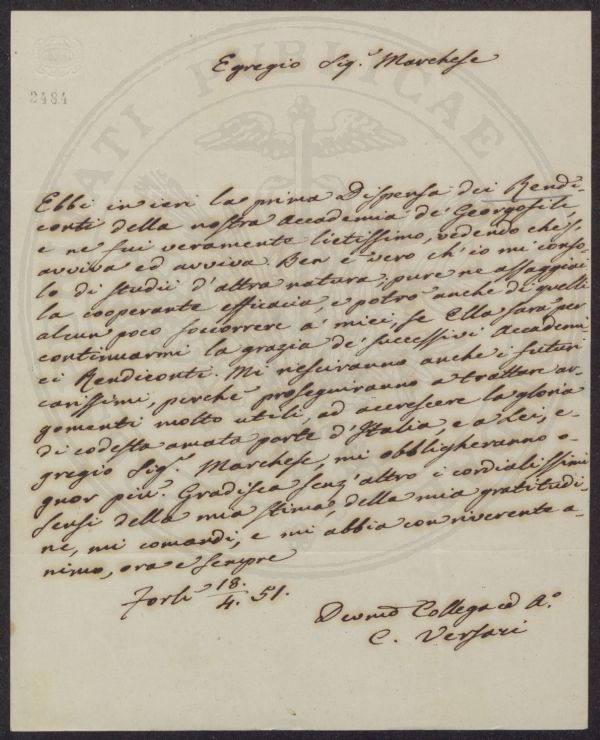 2484
ATI PUBLICAE
Egregio Sig.r Marchese
Ebbi in ieri la prima Dispensa dei Rendi-
conti della nostra Accademia de' Georgofili,
e ne fui veramente lietissimo, vedendo che s'
avviva ed avviva. Ben è vero ch'io mi conso-
lo di studii d'altra natura; pure ne assaggiai
la cooperante efficacia, e potrò anche di quelli
alcun poco soccorrere a' miei, se Ella sarà per
continuarmi la grazia de' successivi Accademi-
ci Rendiconti. Mi riesciranno anche i futuri
carissimi, perchè proseguiranno a trattare ar-
gomenti molto utili, ad accrescere la gloria
di codesta amata parte d'Italia, e a Lei, e-
gregio Sig.r Marchese, mi obbligheranno o-
gnor più. Gradisca senz'altro i cordialissimi
sensi della mia stima, della mia gratitudi-
ne, mi comandi, e mi abbia con riverente a-
nimo, ora e sempre
Forlì 18/4. 51.
Devmo Collega ed A.o
C. Versari